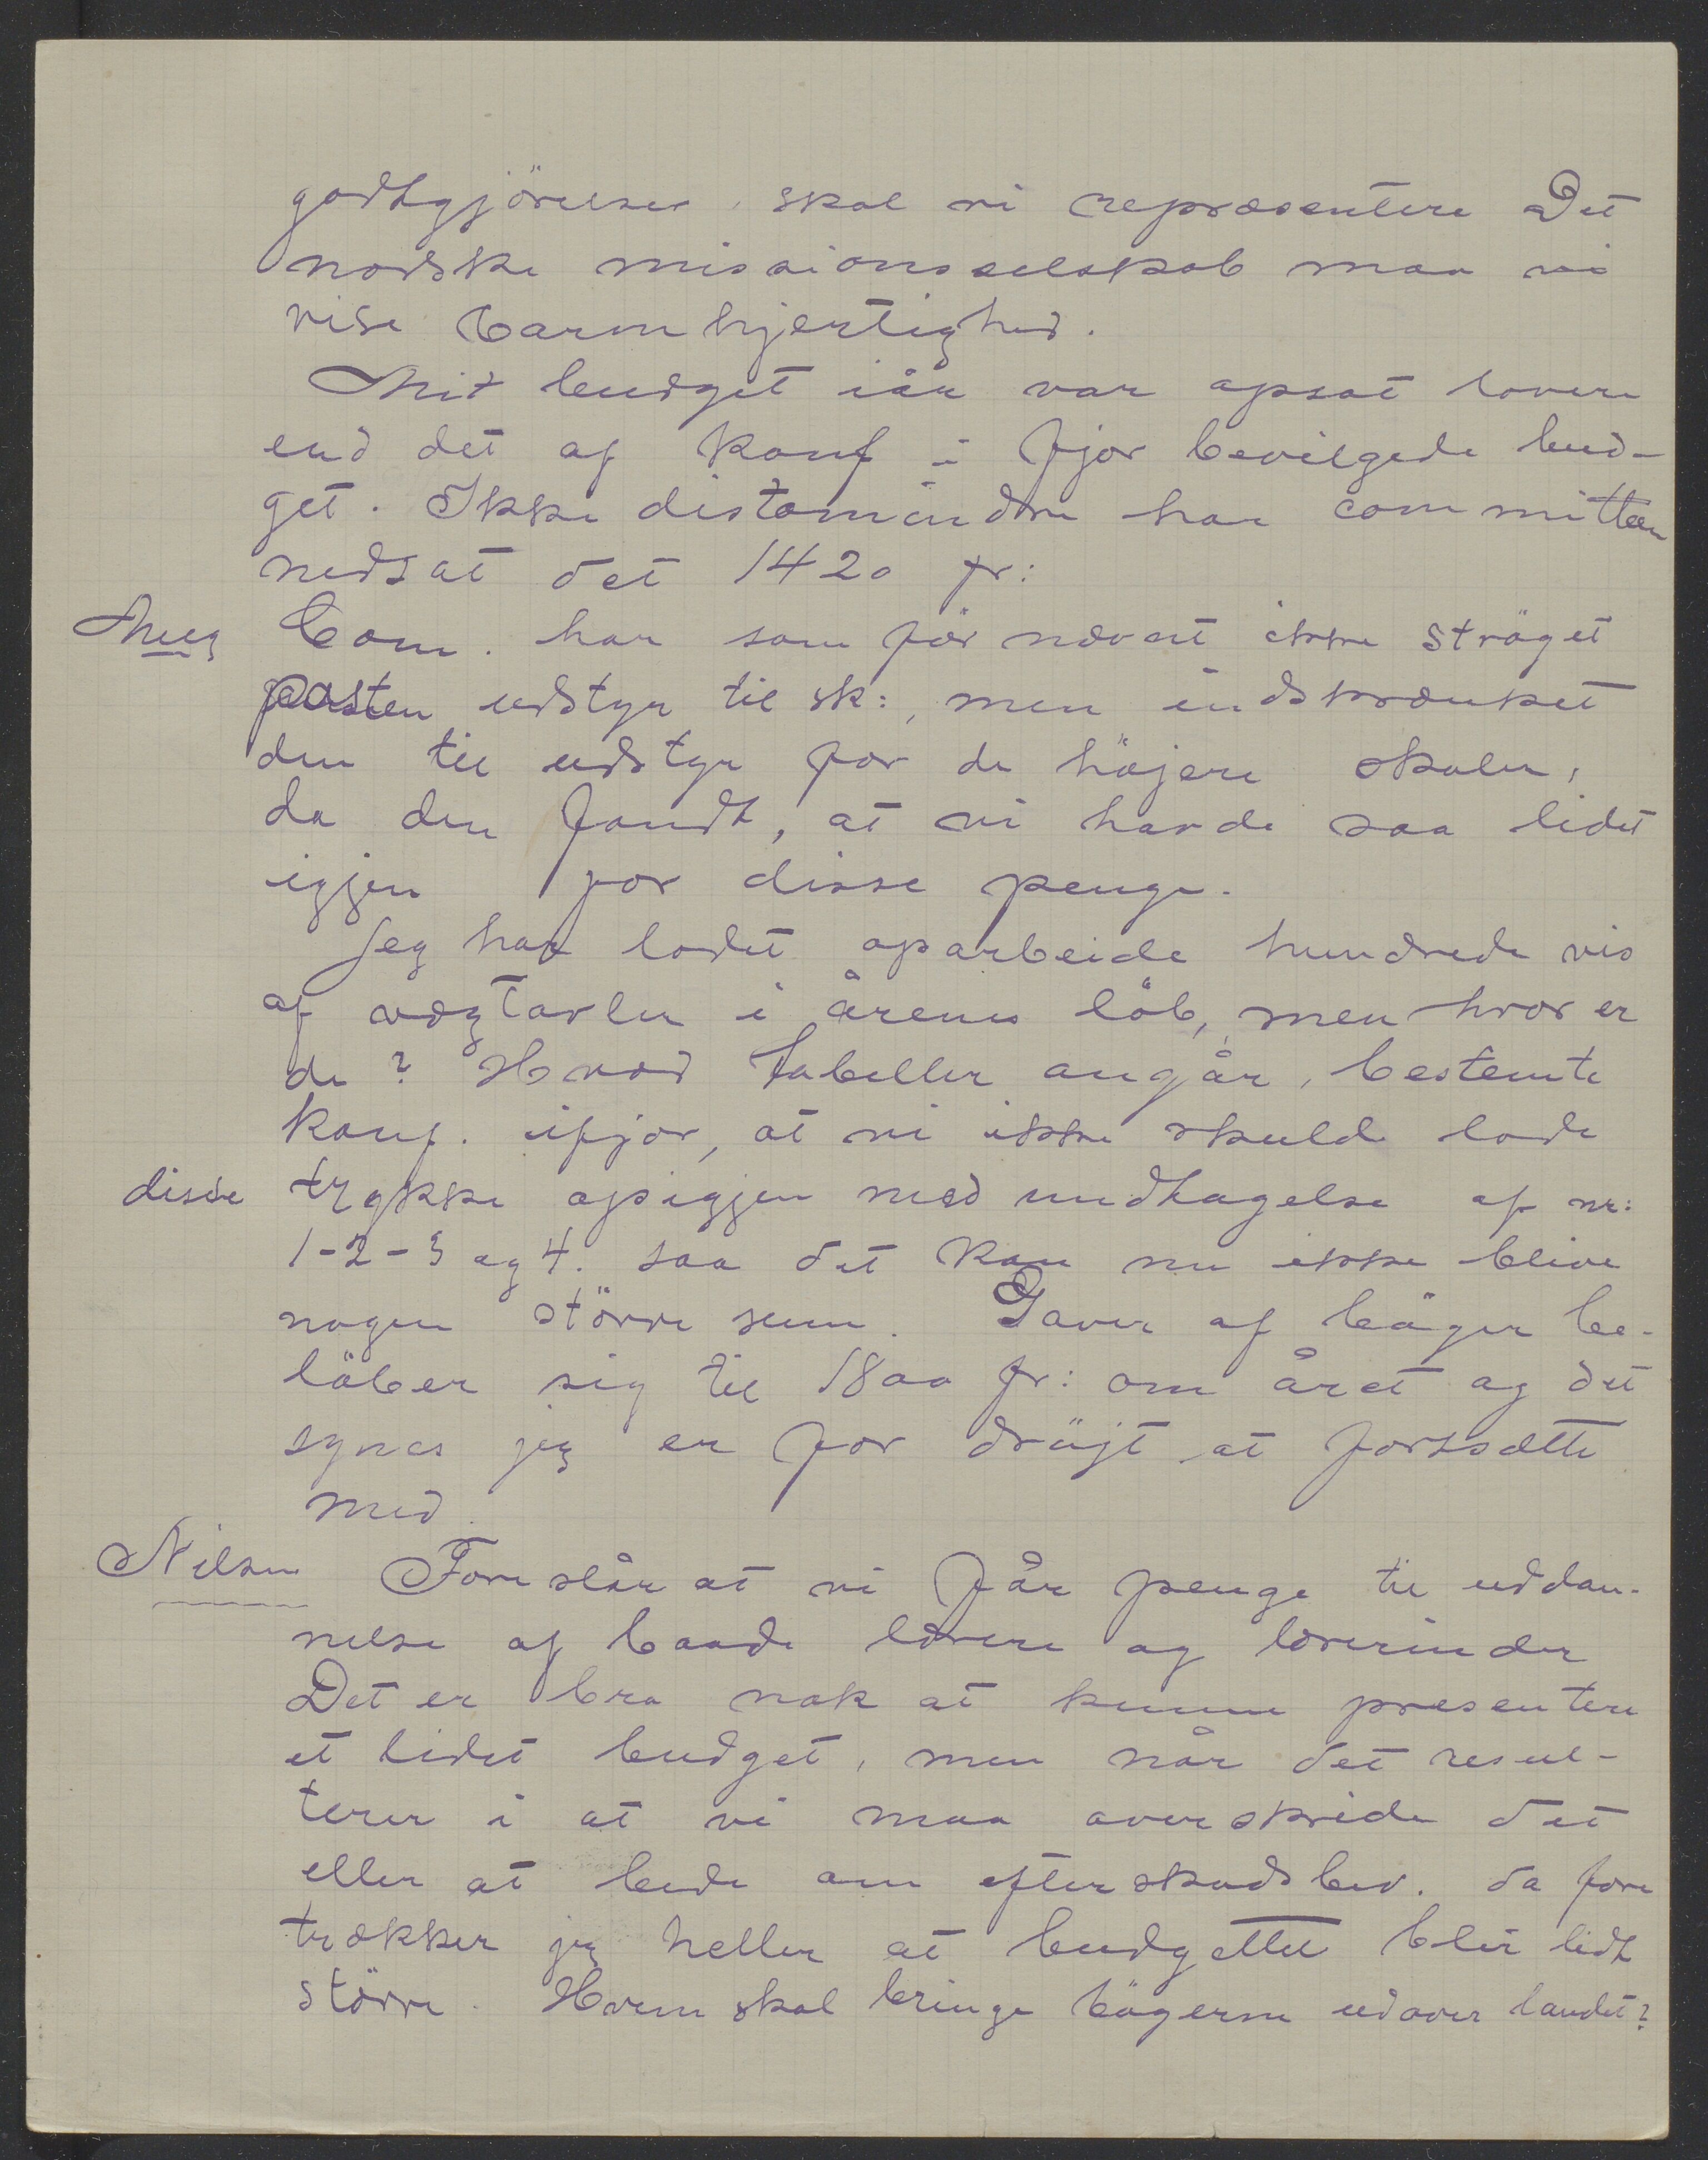 godtgjörelser, skal vi repræsentere Det
norske missionsselskab maa vi
vise barmhjertighed.
Mit budget iår var opsat lavere
end det af konf i fjor bevilgede bud-
get. Ikke distomindre har committeen
nedsat det 1420 fr:
Meeg Com. har som för nævnt ikke ströget
posten udstyr til sk:, men indskrænket
den til udstyr for de höjere skoler,
da den fandt, at vi havde saa lidet
igjen for disse penge.
Jeg har ladet oparbeide hundrede vis
af vægtavler i årenes löb, men hvor er
de? Hvad tabeller angår, bestemte
konf. ifjor, at vi ikke skulde lade
disse trykke opigjen med undtagelse af nr:
1-2-3 og 4. saa det kan nu ikke blive
nogen större sum. Gaver af böger be-
löber sig til 1800 fr: om året og det
synes jeg er for dröjt at fortsætte
med.
Nilsen Foreslår at vi får penge til uddan-
nelse af baade lærere og lærerinder
Det er bra nok at kunne presentere
et lidet budget, men når det resul-
terer i at vi maa overskride det
eller at bede om efterskudsbev. da fore
trækker jeg heller at budgettet blir lidt
större. Hvem skal bringe bögerne udover landet?